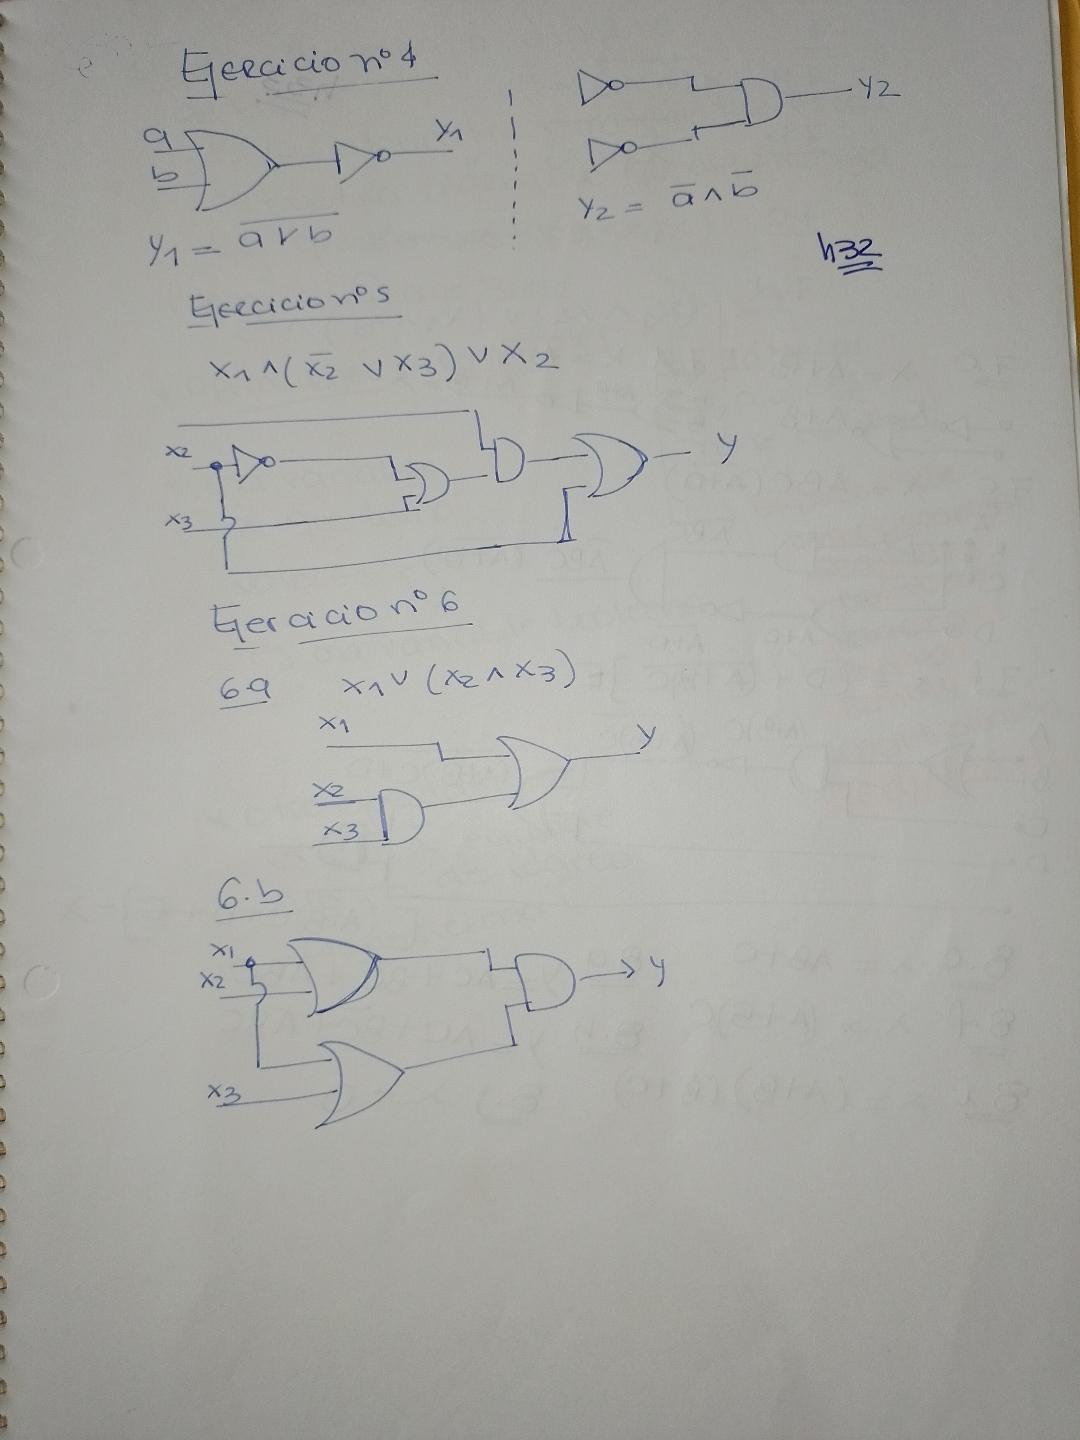 Ejercicio nº 4
a
b
y1
y2
y1 = \overline{a ∨ b}
y2 = \overline{a} ∧ \overline{b}
h32
Ejercicio nº 5
x1 ∧ (\overline{x2} ∨ x3) ∨ x2
x2
y
x3
Ejercicio nº 6
6a x1 ∨ (x2 ∧ x3)
x1
y
x2
x3
6.b
x1
x2
y
x3